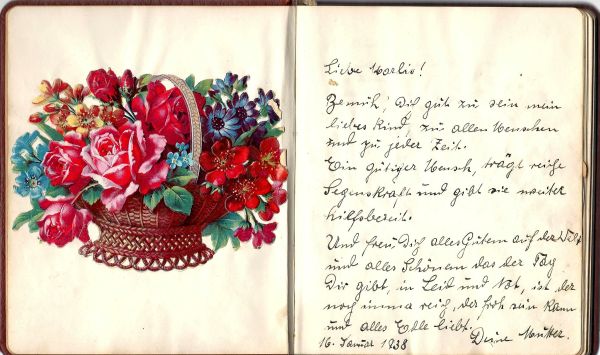 Liebe Marlis!
Bemüh, Dich gut zu sein mein
liebes Kind, zu allen Menschen
und zu jeder Zeit.
Ein gütiger Mensch, trägt reiche
Segenskraft und gibt sie weiter
hilfsbereit.
Und freu Dich alles Gutem auf der Welt
und alles Schönem das der Tag
Dir gibt, in Leid und Not, ist der
noch imma reich, der froh sein kann
und alles Edle liebt.
Deine Mutter.
16. Januar 1938